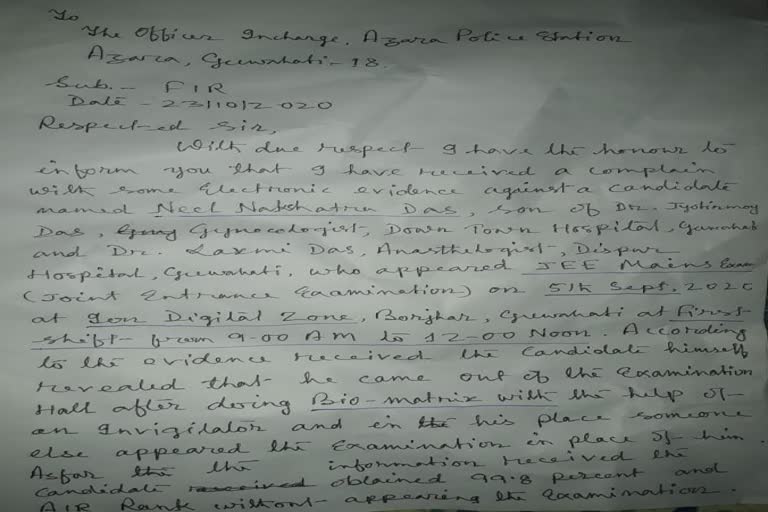 To
The Officer Incharge, Azara Police Station
Azara, Guwahati-18.
Sub. - FIR
Date - 23/10/2020
Respected Sir,
With due respect I have the honour to
inform you that I have received a complain
with some Electronic evidence against a candidate
named Neel Nakshatra Das, son of Dr. Jyotirmoy
Das, Gynocologist, Down Town Hospital, Guwahati
and Dr. Laxmi Das, Anasthelogist, Dispur
Hospital, Guwahati, who appeared JEE Mains Exam
(Joint Entrance Examination) on 5th Sept. 2020
at Ion Digital Zone, Borjhar, Guwahati at First
shift from 9-00 AM to 12-00 Noon. According
to the evidence received the candidate himself
revealed that he came out of the Examination
Hall after doing Bio-matrix with the help of
an Invigilator and in the his place someone
else appeared the Examination in place of him.
Asfar the the information received the
candidate received obtained 99.8 percent and
AIR Rank without appearing the Examination.